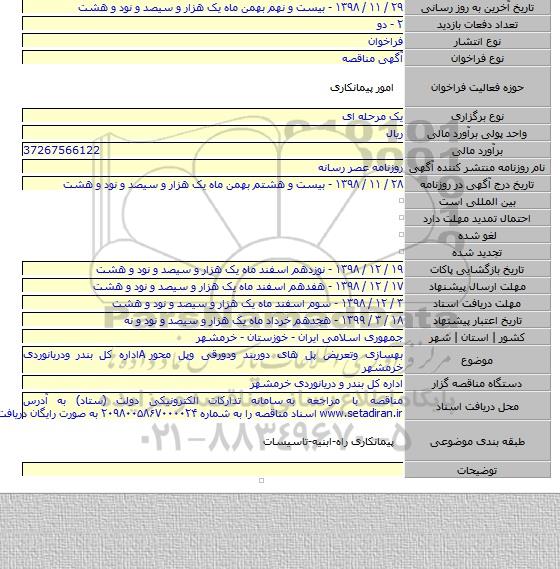 تاریخ آخرین به روز رسانی ۲۹ / ۱۱ / ۱۳۹۸ - بیست و نهم بهمن ماه یک هزار و سیصد و نود و هشت
تعداد دفعات بازدید ۲ - دو
نوع انتشار فراخوان
نوع فراخوان آگهی مناقصه
حوزه فعالیت فراخوان امور پیمانکاری
نوع برگزاری یک مرحله ای
واحد پولی برآورد مالی ریال
برآورد مالی 37267566122
نام روزنامه منتشر کننده آگهی روزنامه عصر رسانه
تاریخ درج آگهی در روزنامه ۲۸ / ۱۱ / ۱۳۹۸ - بیست و هشتم بهمن ماه یک هزار و سیصد و نود و هشت
بین المللی است
احتمال تمدید مهلت دارد
لغو شده
تجدید شده
تاریخ بازگشایی پاکات ۱۹ / ۱۲ / ۱۳۹۸ - نوزدهم اسفند ماه یک هزار و سیصد و نود و هشت
مهلت ارسال پیشنهاد ۱۷ / ۱۲ / ۱۳۹۸ - هفدهم اسفند ماه یک هزار و سیصد و نود و هشت
مهلت دریافت اسناد ۳ / ۱۲ / ۱۳۹۸ - سوم اسفند ماه یک هزار و سیصد و نود و هشت
تاریخ اعتبار پیشنهاد ۱۸ / ۳ / ۱۳۹۹ - هجدهم خرداد ماه یک هزار و سیصد و نود و نه
کشور | استان | شهر جمهوری اسلامی ایران - خوزستان - خرمشهر
موضوع بهسازی وتعریض پل های دوربند ودورقی وپل محور Aاداره کل بندر ودریانوردی
خرمشهر
دستگاه مناقصه گزار اداره کل بندر و دریانوردی خرمشهر
محل دریافت اسناد مناقصه با مراجعه به سامانه تدارکات الکترونیکی دولت (ستاد) به آدرس
www.setadiran.ir اسناد مناقصه را به شماره ۲۰۹۸۰۰۵۸۶۷۰۰۰۰۲۴ به صورت رایگان دریافت
طبقه بندی موضوعی پیمانکاری راه-ابنیه-تاسیسات
توضیحات
۰۲۱-۸۸۳۴۹۶۷۰-۵